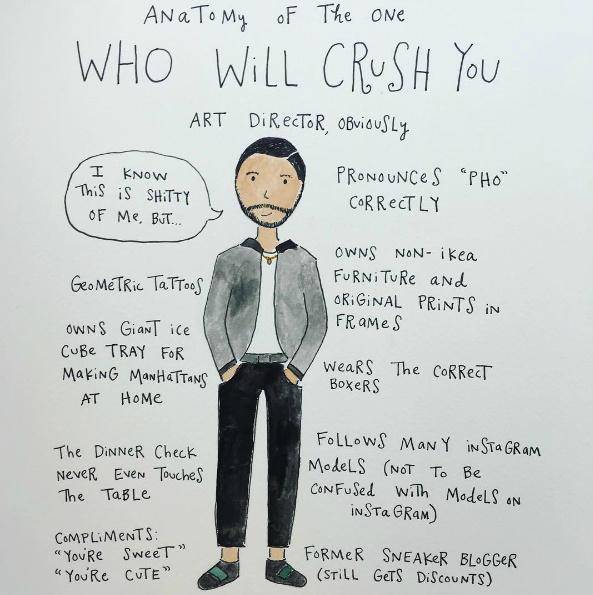 ANaToMy oF The ONe
WHO WiLL CRuSH You
ART DiRecToR, OBviOuSLy
I KNOW
THiS iS SHiTTY
OF Me, BuT...
PRONOUNCeS "PHO"
CORReCTLY
OWNS NON-iKea
FuRNiTuRe aND
ORiGiNAL PRiNTS iN
FRaMeS
GeOMeTRiC TaTToOS
OWNS GiaNT ice
CuBe TRAY FOR
MaKiNG MaNHaTTaNS
AT HOMe
WeaRS The CORReCT
BOXeRS
The DiNNeR CHecK
NeVeR EVeN TouCHeS
The TaBLe
FoLLOWS MaNY iNSTaGRaM
MoDeLS (NOT To Be
CONFuSed WiTH MoDeLS ON
iNSTaGRaM)
COMPLiMeNTS:
"YOu'Re SweeT"
"YOu'Re CuTe"
FORMeR SNeaKeR BLOGGeR
(STiLL GeTS DiSCOuNTS)